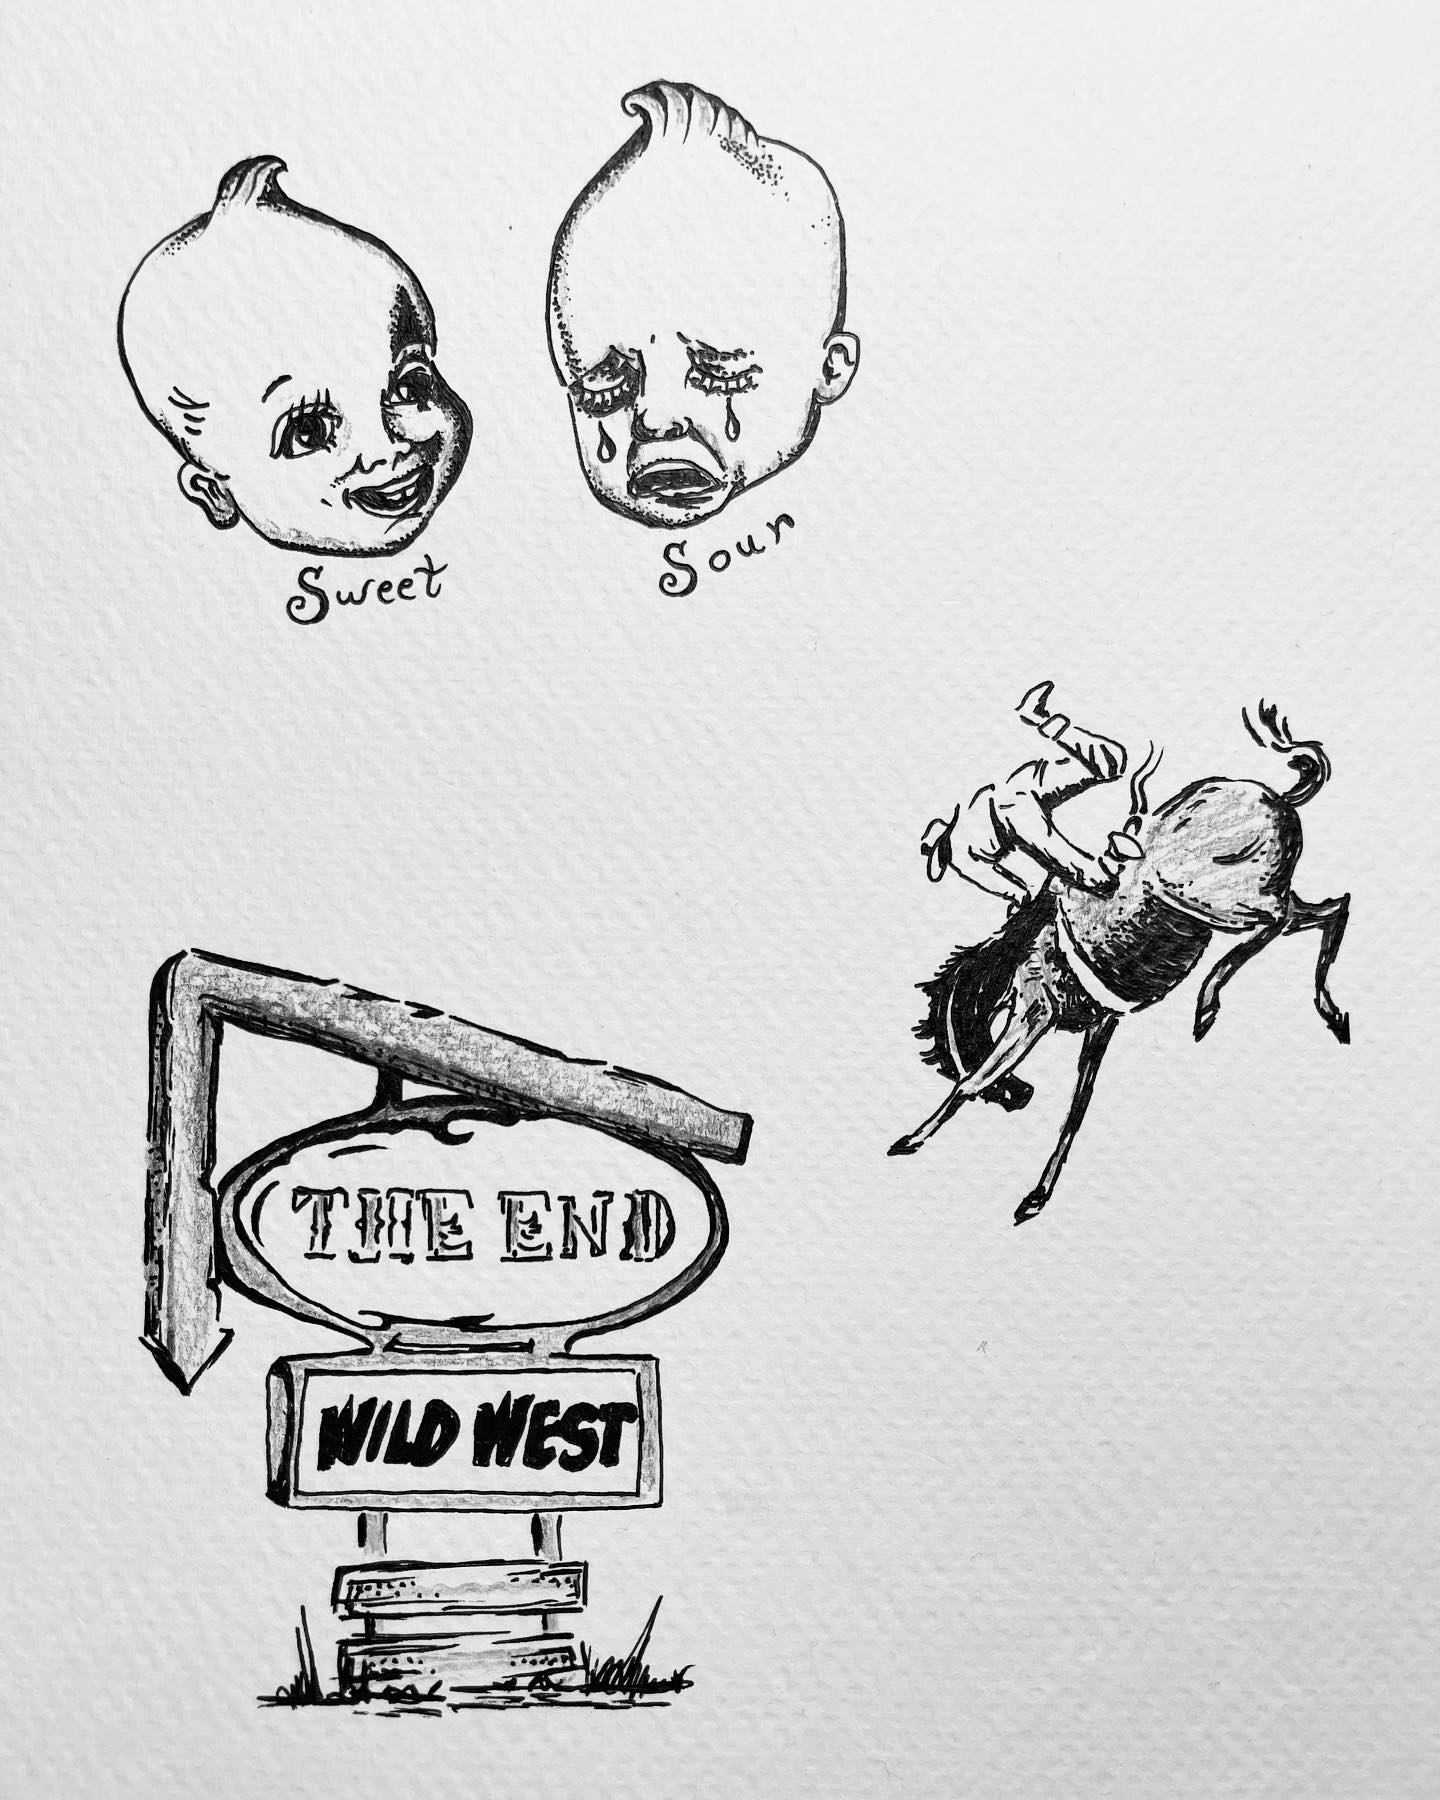 Sweet
Sour
THE END
WILD WEST